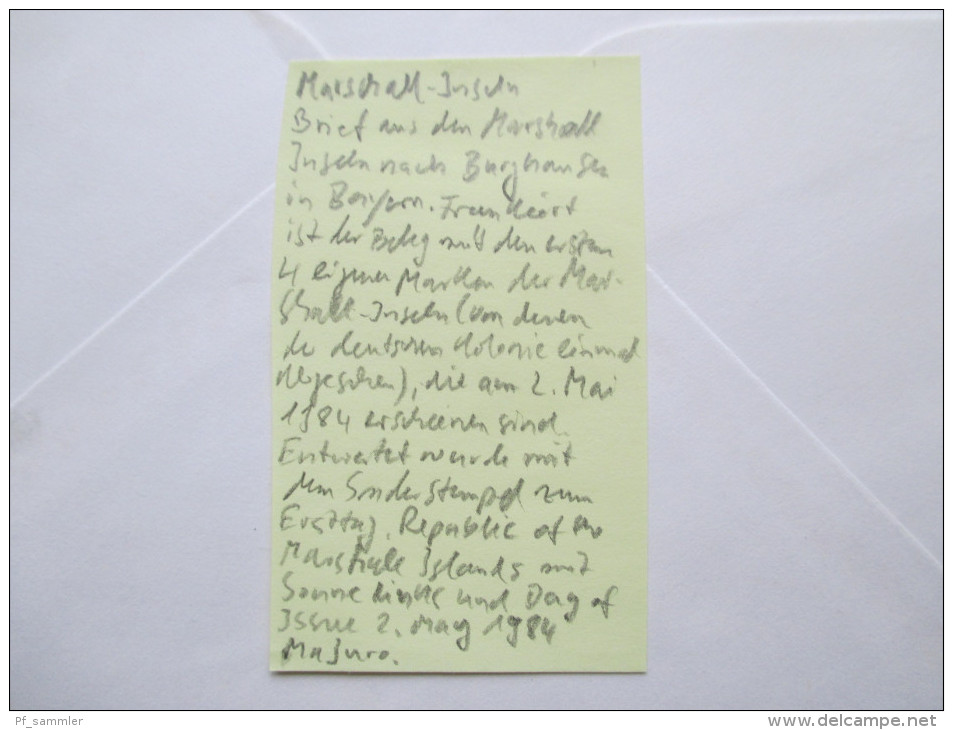 Marshall-Inseln
Brief aus den Marshall
Inseln nach Burghausen
in Bayern. Frankiert
ist der Beleg mit den ersten
4 eigenen Marken der Mar-
shall-Inseln (von denen
der deutschen Kolonie einmal
abgesehen), die am 2. Mai
1984 erschienen sind.
Entwertet wurde mit
dem Sonderstempel zum
Ersttag. Republic of the
Marshall Islands mit
Sonne links und Day of
Issue 2. May 1984
Majuro.
Pf_sammler
www.delcampe.net